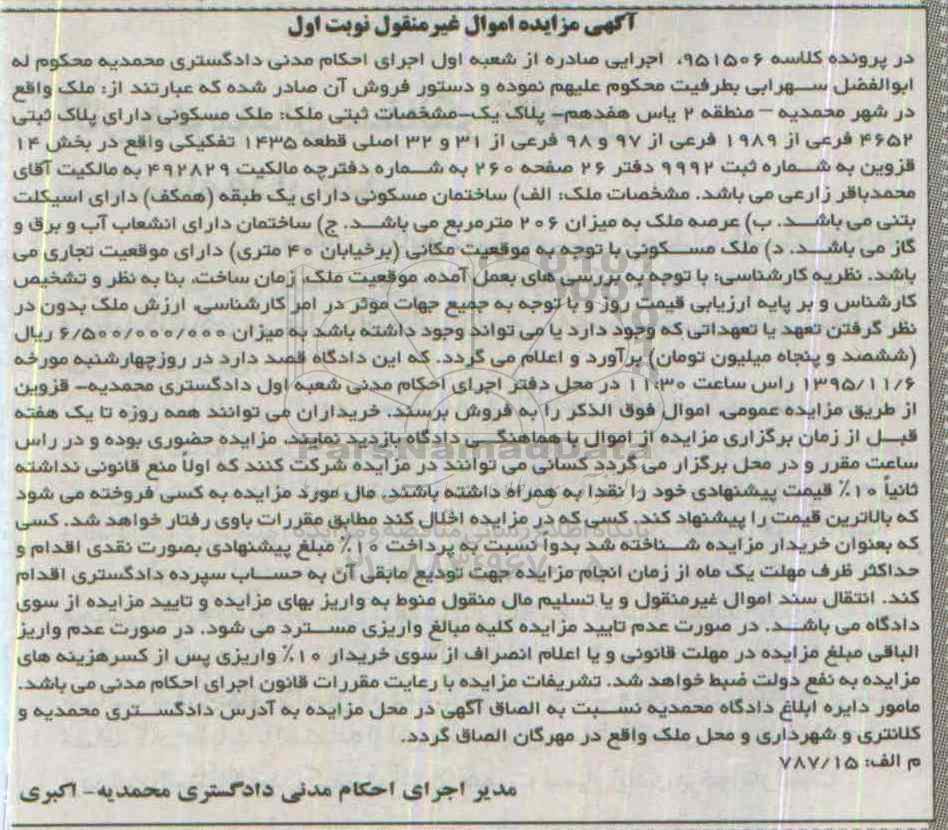 آگهی مزایده اموال غیرمنقول نوبت اول
در پرونده کلاسه ۹۵۱۵۰۶، اجرایی صادره از شعبه اول اجرای احکام مدنی دادگستری محمدیه محکوم له
ابوالفضل سهرابی بطرفیت محکوم علیهم نموده و دستور فروش آن صادر شده که عبارتند از: ملک واقع
در شهر محمدیه – منطقه ۲ یاس هفدهم- پلاک یک-مشخصات ثبتی ملک: ملک مسکونی دارای پلاک ثبتی
۴۶۵۲ فرعی از ۱۹۸۹ فرعی از ۹۷ و ۹۸ فرعی از ۳۱ و ۳۲ اصلی قطعه ۱۴۳۵ تفکیکی واقع در بخش ۱۴
قزوین به شماره ثبت ۹۹۹۲ دفتر ۲۶ صفحه ۲۶۰ به شماره دفترچه مالکیت ۴۹۲۸۲۹ به مالکیت آقای
محمدباقر زارعی می باشد. مشخصات ملک: الف) ساختمان مسکونی دارای یک طبقه (همکف) دارای اسکلت
بتنی می باشد. ب) عرصه ملک به میزان ۲۰۶ مترمربع می باشد. ج) ساختمان دارای انشعاب آب و برق و
گاز می باشد. د) ملک مسکونی با توجه به موقعیت مکانی (برخیابان ۴۰ متری) دارای موقعیت تجاری می
باشد. نظریه کارشناسی: با توجه به بررسی های بعمل آمده، موقعیت ملک، زمان ساخت، بنا به نظر و تشخیص
کارشناس و بر پایه ارزیابی قیمت روز و با توجه به جمیع جهات موثر در امر کارشناسی، ارزش ملک بدون در
نظر گرفتن تعهد یا تعهداتی که وجود دارد یا می تواند وجود داشته باشد به میزان ۶/۵۰۰/۰۰۰/۰۰۰ ریال
(ششصد و پنجاه میلیون تومان) برآورد و اعلام می گردد. که این دادگاه قصد دارد در روزچهارشنبه مورخه
۱۳۹۵/۱۱/۶ راس ساعت ۱۱:۳۰ در محل دفتر اجرای احکام مدنی شعبه اول دادگستری محمدیه- قزوین
از طریق مزایده عمومی، اموال فوق الذکر را به فروش برسند. خریداران می توانند همه روزه تا یک هفته
قبل از زمان برگزاری مزایده از اموال با هماهنگی دادگاه بازدید نمایند. مزایده حضوری بوده و در راس
ساعت مقرر و در محل برگزار می گردد کسانی می توانند در مزایده شرکت کنند که اولاً منع قانونی نداشته
ثانیاً ۱۰٪ قیمت پیشنهادی خود را نقدا به همراه داشته باشند. مال مورد مزایده به کسی فروخته می شود
که بالاترین قیمت را پیشنهاد کند. کسی که در مزایده اخلال کند مطابق مقررات باوی رفتار خواهد شد. کسی
که بعنوان خریدار مزایده شناخته شد بدوا نسبت به پرداخت ۱۰٪ مبلغ پیشنهادی بصورت نقدی اقدام و
حداکثر ظرف مهلت یک ماه از زمان انجام مزایده جهت تودیع مابقی آن به حساب سپرده دادگستری اقدام
کند. انتقال سند اموال غیرمنقول و یا تسلیم مال منقول منوط به واریز بهای مزایده و تایید مزایده از سوی
دادگاه می باشد. در صورت عدم تایید مزایده کلیه مبالغ واریزی مسترد می شود. در صورت عدم واریز
الباقی مبلغ مزایده در مهلت قانونی و یا اعلام انصراف از سوی خریدار ۱۰٪ واریزی پس از کسرهزینه های
مزایده به نفع دولت ضبط خواهد شد. تشریفات مزایده با رعایت مقررات قانون اجرای احکام مدنی می باشد.
مامور دایره ابلاغ دادگاه محمدیه نسبت به الصاق آگهی در محل مزایده به آدرس دادگستری محمدیه و
کلانتری و شهرداری و محل ملک واقع در مهرگان الصاق گردد.
م الف: ۷۸۷/۱۵
مدیر اجرای احکام مدنی دادگستری محمدیه- اکبری
ParsNamadData